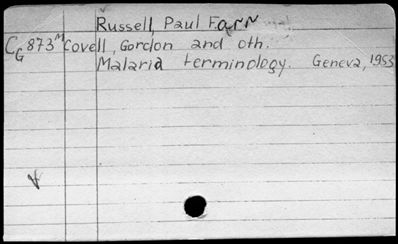 Russell, Paul Farr
CG 873M Covell, Gordon and oth.
Malaria terminology. Geneva, 1953